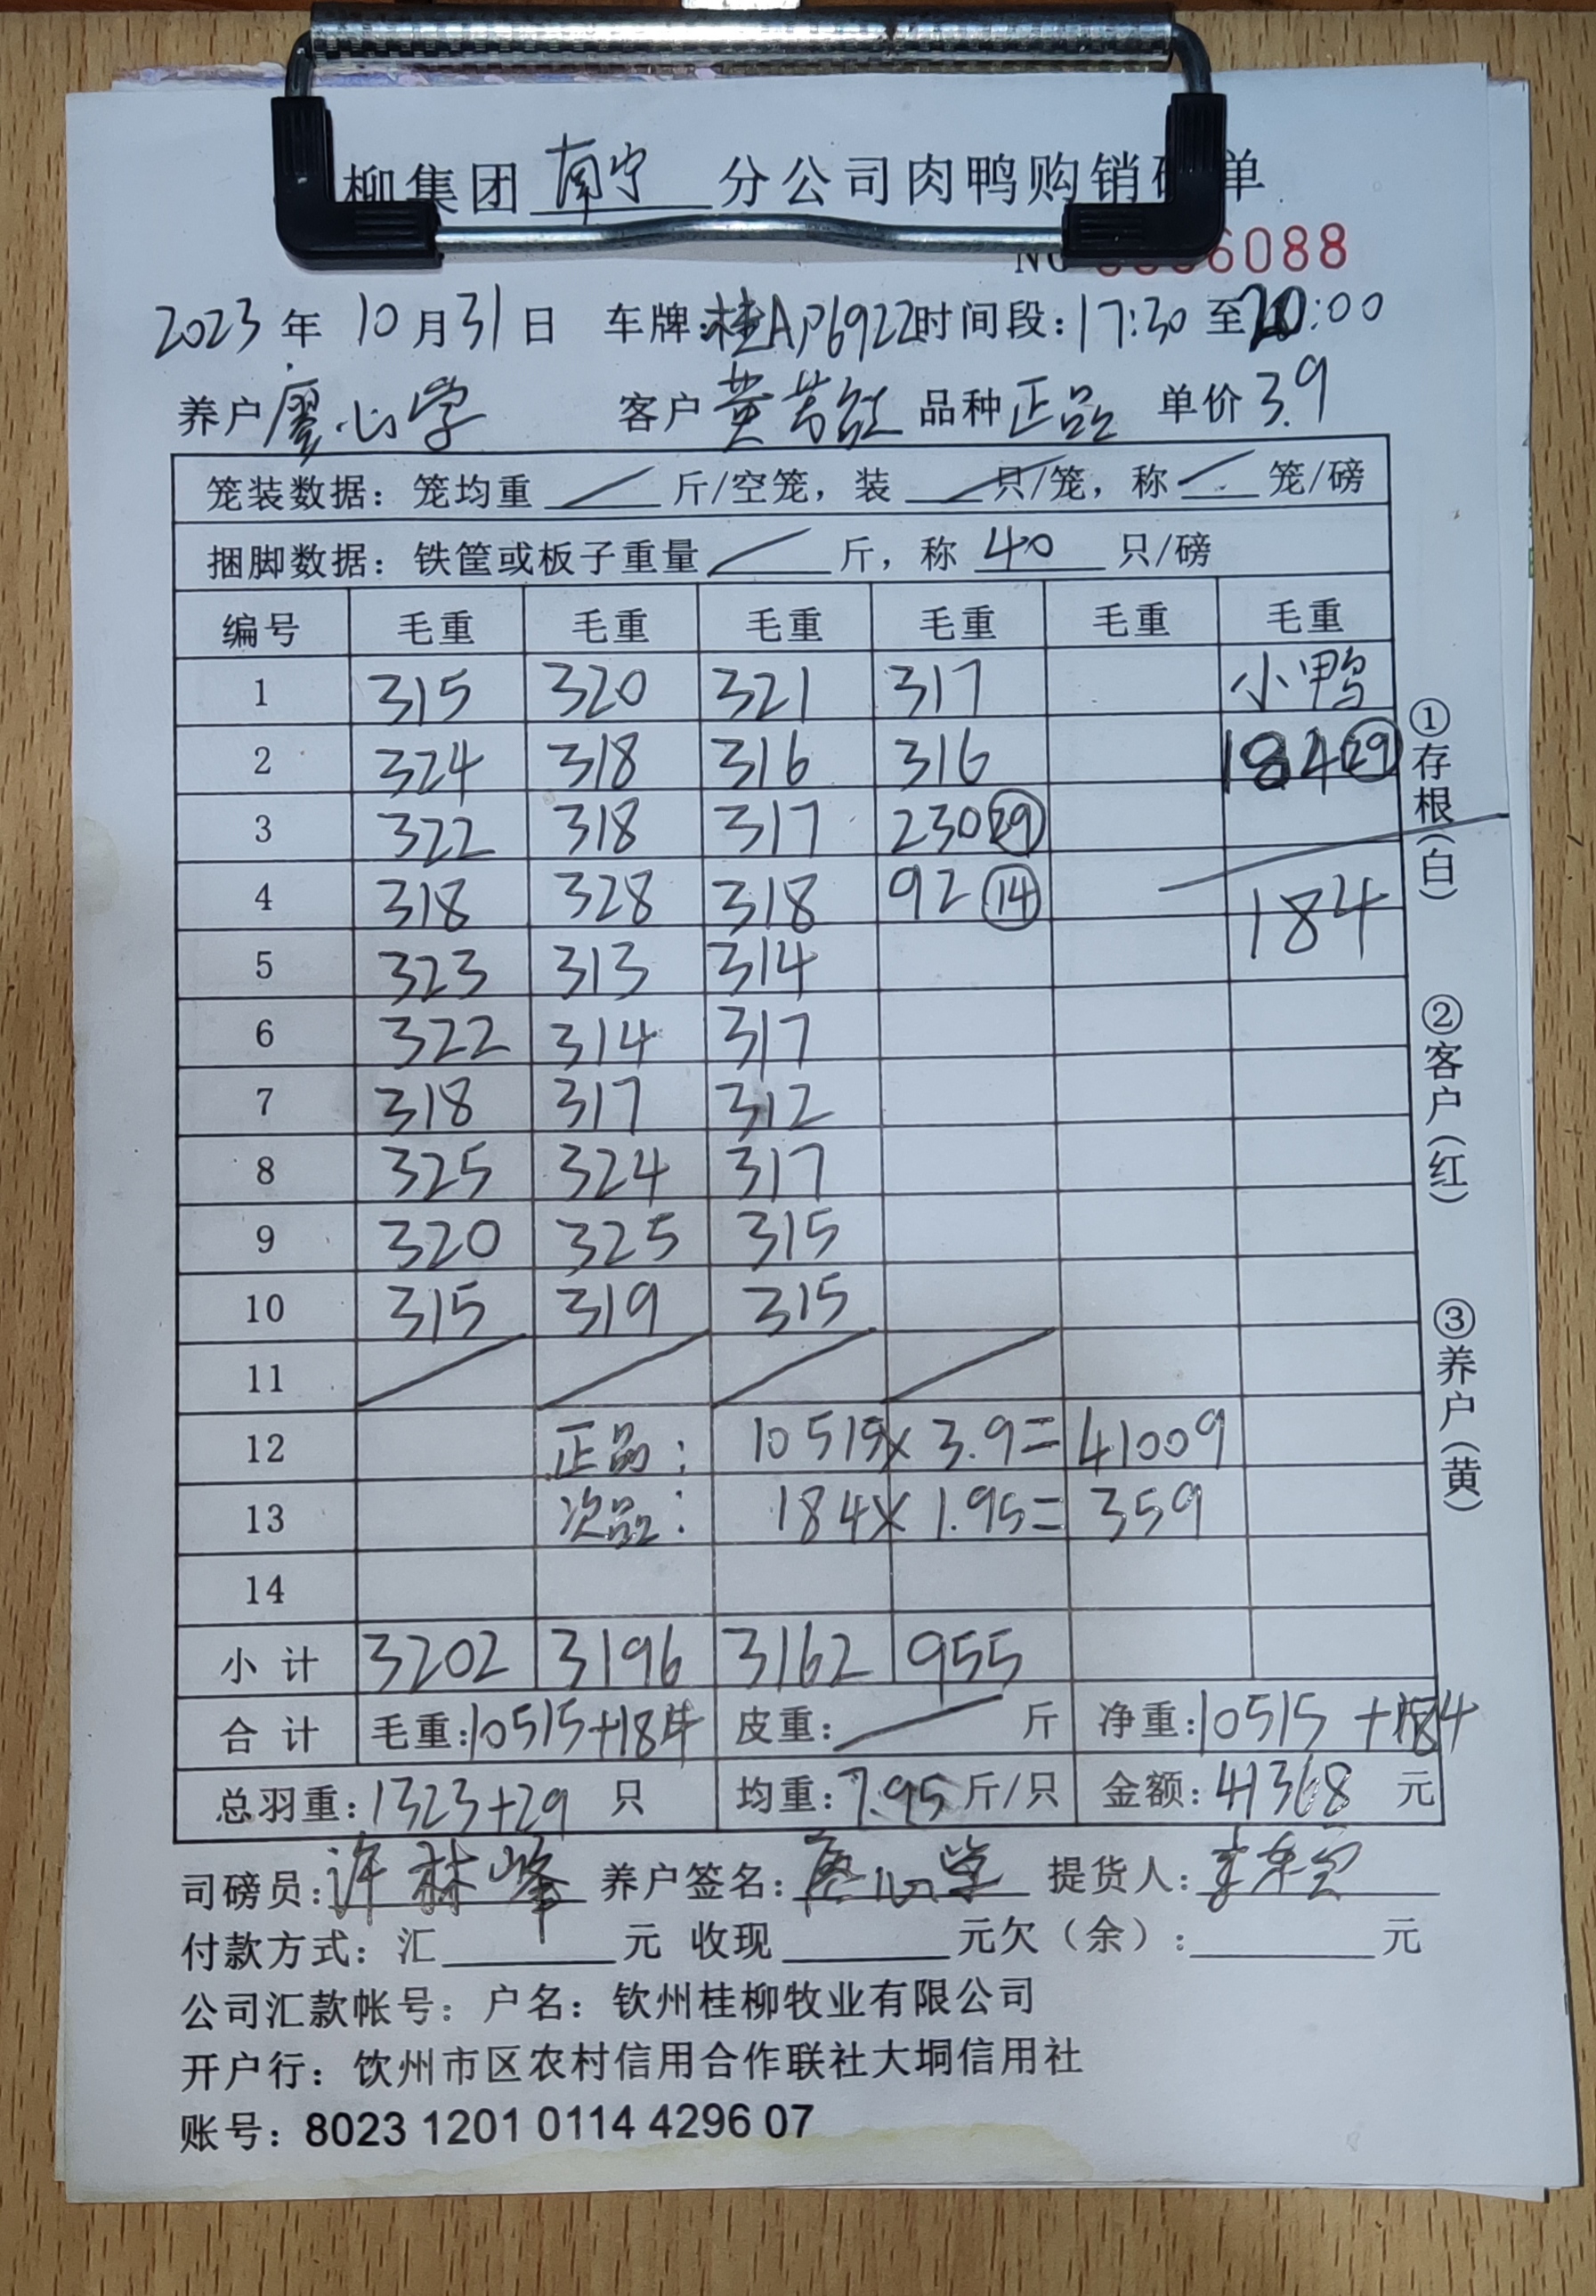 柳集团 南宁 分公司肉鸭购销 单
6088
2023 年 10 月 31 日 车牌:桂AP6922 时间段:17:30 至 20:00
养户 廖心学 客户 黄 品种 正品 单价 3.9
笼装数据: 笼均重 / 斤/空笼, 装 / 只/笼, 称 / 笼/磅
捆脚数据: 铁筐或板子重量 / 斤, 称 40 只/磅
编号 毛重 毛重 毛重 毛重 毛重 毛重
1 315 320 321 317 小鸭
2 324 318 316 316 184 29
3 322 318 317 230 29
4 318 328 318 92 14 184
5 323 313 314
6 322 314 317
7 318 317 312
8 325 324 317
9 320 325 315
10 315 319 315
11 / / / /
12 正品: 10515 × 3.9 = 41009
13 次品: 184 × 1.95 = 359
14
小计 3202 3196 3162 955
合计 毛重:10515+184 皮重: / 斤 净重:10515 +184
总羽重:1323+29 只 均重:7.95 斤/只 金额:41368 元
司磅员:许林峰 养户签名:廖心学 提货人:
付款方式: 汇 元 收现 元欠(余): 元
公司汇款帐号: 户名: 钦州桂柳牧业有限公司
开户行: 钦州市区农村信用合作联社大垌信用社
账号: 8023 1201 0114 4296 07
①存根(白)
②客户(红)
③养户(黄)